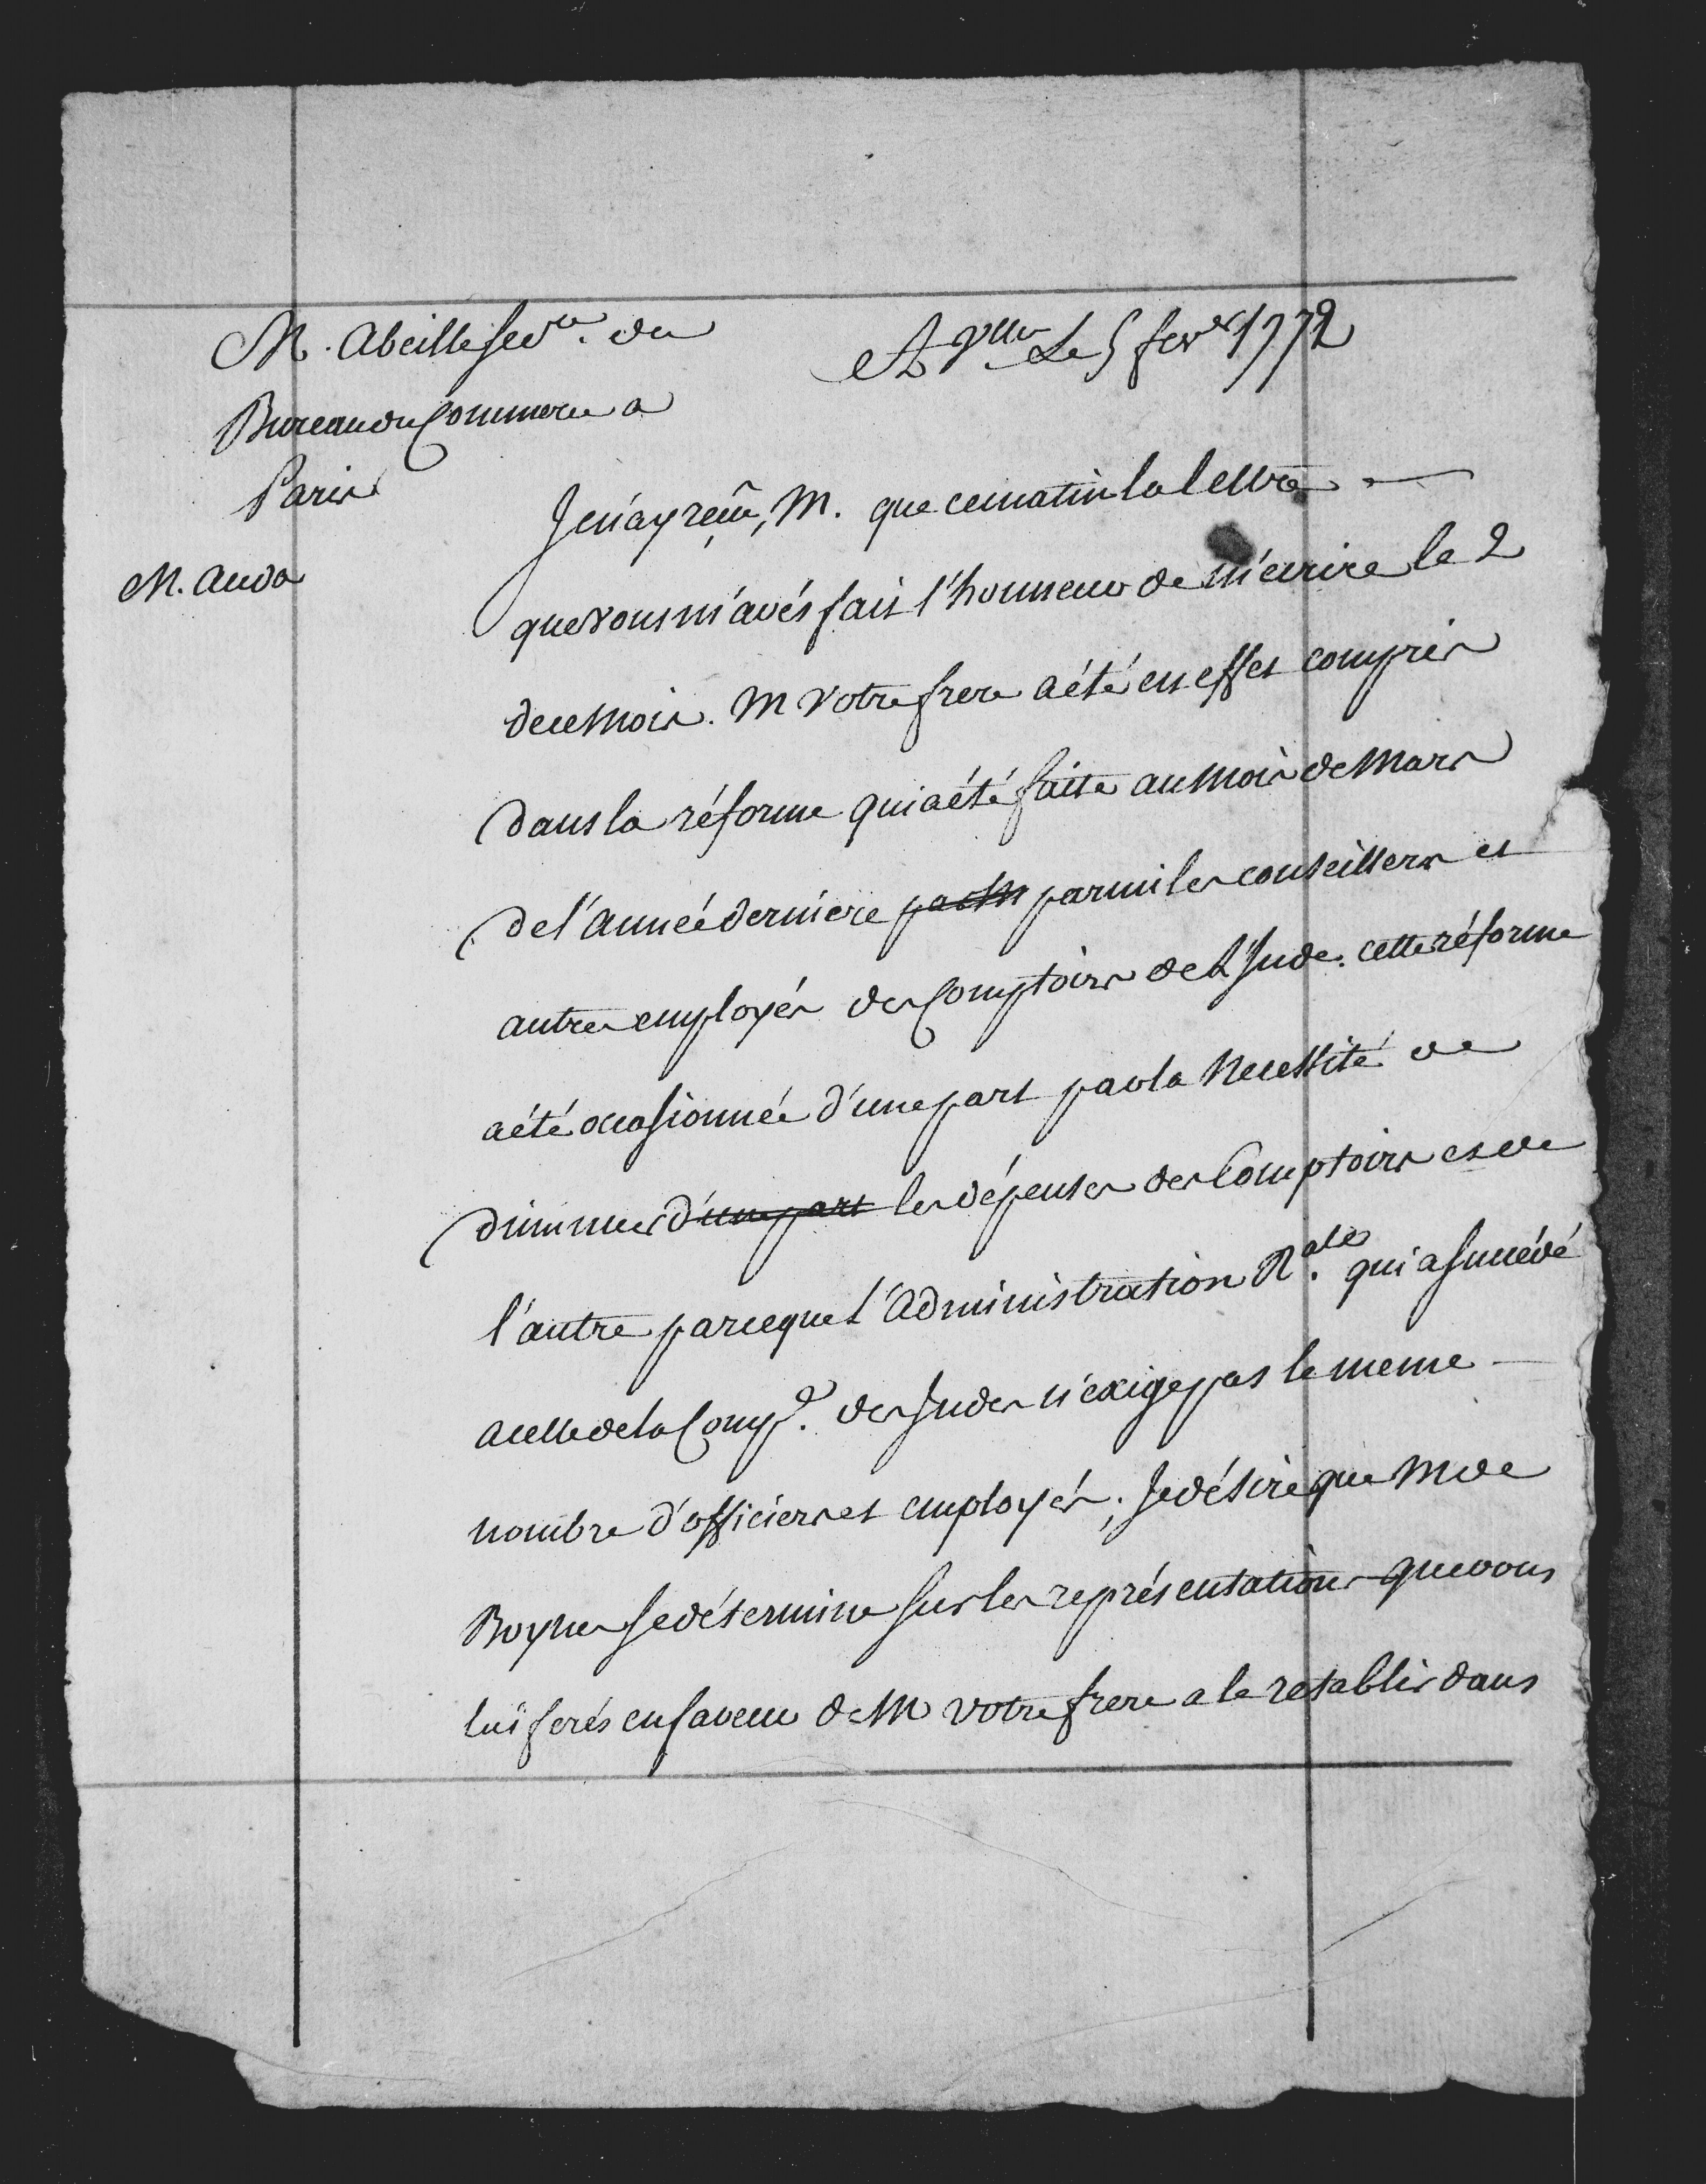 M. Abeille Secre. du
Bureau du Commerce a
Paris
M. Auda
A Vlles Le 5 fevr 1772
Je n'ay reçû, M. que ce matin la lettre
que vous m'avés fait l'honneur de m'ecrire le 2
de ce Mois. M votre frere a été en effet compris
dans la réforme qui a été faite au Mois de Mars
de l'année derniere parmi les conseillers et
autres employés des Comptoirs de L'Inde. cette réforme
a été occasionnée d'une part par la Necessité de
diminuer d'une part les dépenses des Comptoirs et de
l'autre parceque L'Administration Rale. qui a succédé
a celle de la Compe. des Indes n'exige pas le meme
nombre d'officiers et employés; Je désire que M de
Boynes se détermine sur les représentations que vous
lui ferés en faveur de M votre frere a le retablir dans